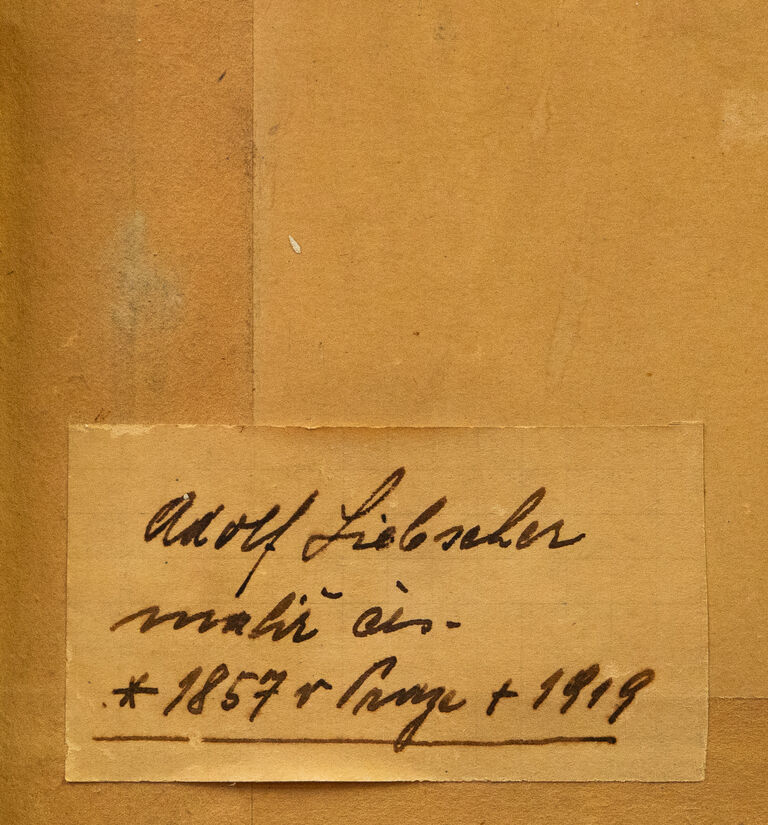 Adolf Liebscher
malíř čes.
* 1857 v Praze + 1919